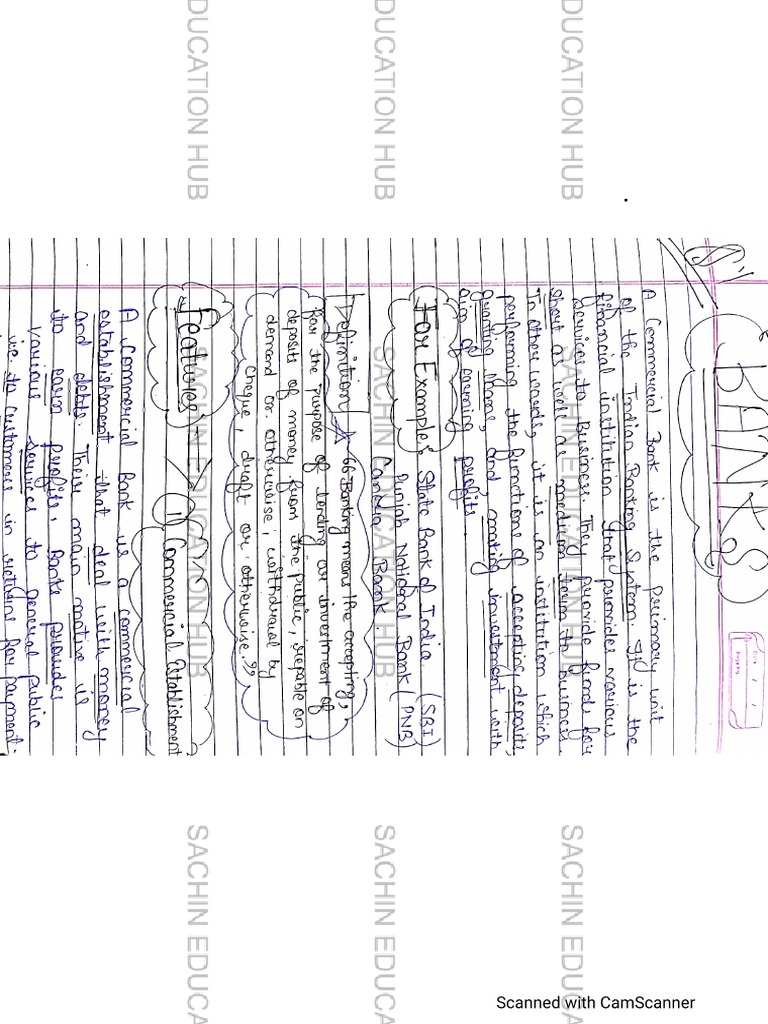 BANKS
A Commercial Bank is the primary unit
of the Indian Banking System. It is the
financial institution that provides various
services to Business. They provide funds for
short as well as medium term to business.
In other words, it is an institution which
performing the functions of accepting deposits,
granting loans, and making investment with
aim of earning profits.
For Examples State Bank of India (SBI)
Punjab National Bank (PNB)
Canara Bank
Definition "Banking means the accepting,
for the purpose of lending or investment of
deposits of money from the public, repable on
demand or otherwise, withdrawal by
cheque, draft or otherwise."
Features 1) Commercial Establishment
A Commercial Bank is a commercial
establishment that deal with money
and debts. Their main motive is
to earn profits. Banks provides
various services to general public
i.e. to customers in returns for payment.
SACHIN EDUCATION HUB
SACHIN EDUCATION HUB
SACHIN EDUCATION HUB
Scanned with CamScanner